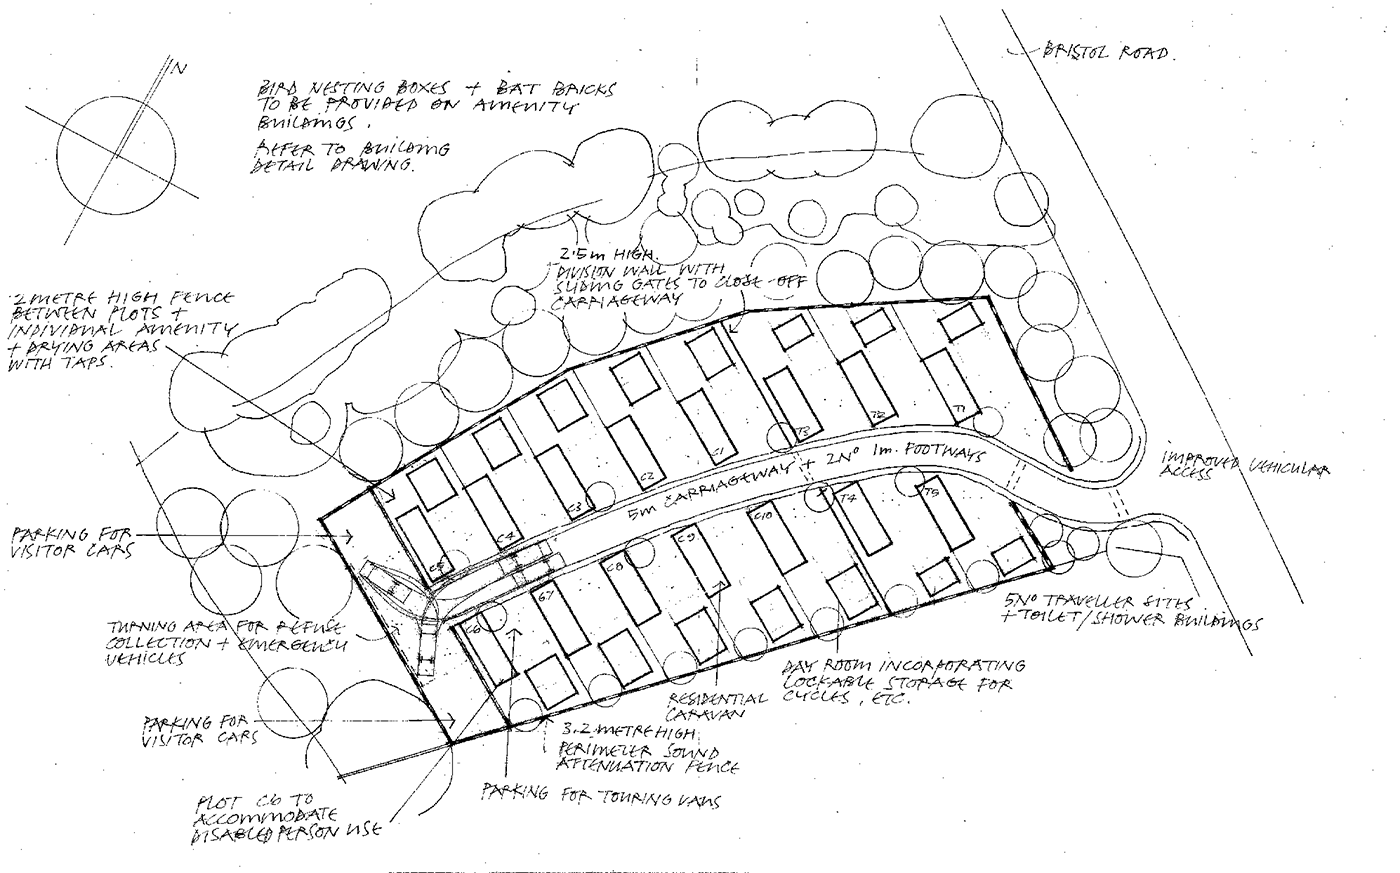 N
BRISTOL ROAD.
BIRD NESTING BOXES + BAT BRICKS
TO BE PROVIDED ON AMENITY
BUILDINGS.
REFER TO BUILDING
DETAIL DRAWING.
2.5m HIGH
DIVISION WALL WITH
SLIDING GATES TO CLOSE OFF
CARRIAGEWAY
2 METRE HIGH FENCE
BETWEEN PLOTS +
INDIVIDUAL AMENITY
+ DRYING AREAS
WITH TAPS.
T1
T2
T3
C1
C2
C3
C4
C5
5m CARRIAGEWAY + 2No 1m. FOOTWAYS
IMPROVED VEHICULAR
ACCESS
T5
T4
C10
C9
C8
C7
C6
PARKING FOR
VISITOR CARS
TURNING AREA FOR REFUSE
COLLECTION + EMERGENCY
VEHICLES
5No TRAVELLER SITES
+ TOILET/SHOWER BUILDINGS
DAY ROOM INCORPORATING
LOCKABLE STORAGE FOR
CYCLES, ETC.
RESIDENTIAL
CARAVAN
PARKING FOR
VISITOR CARS
3.2 METRE HIGH
PERIMETER SOUND
ATTENUATION FENCE
PARKING FOR TOURING VANS
PLOT C6 TO
ACCOMMODATE
DISABLED PERSON USE